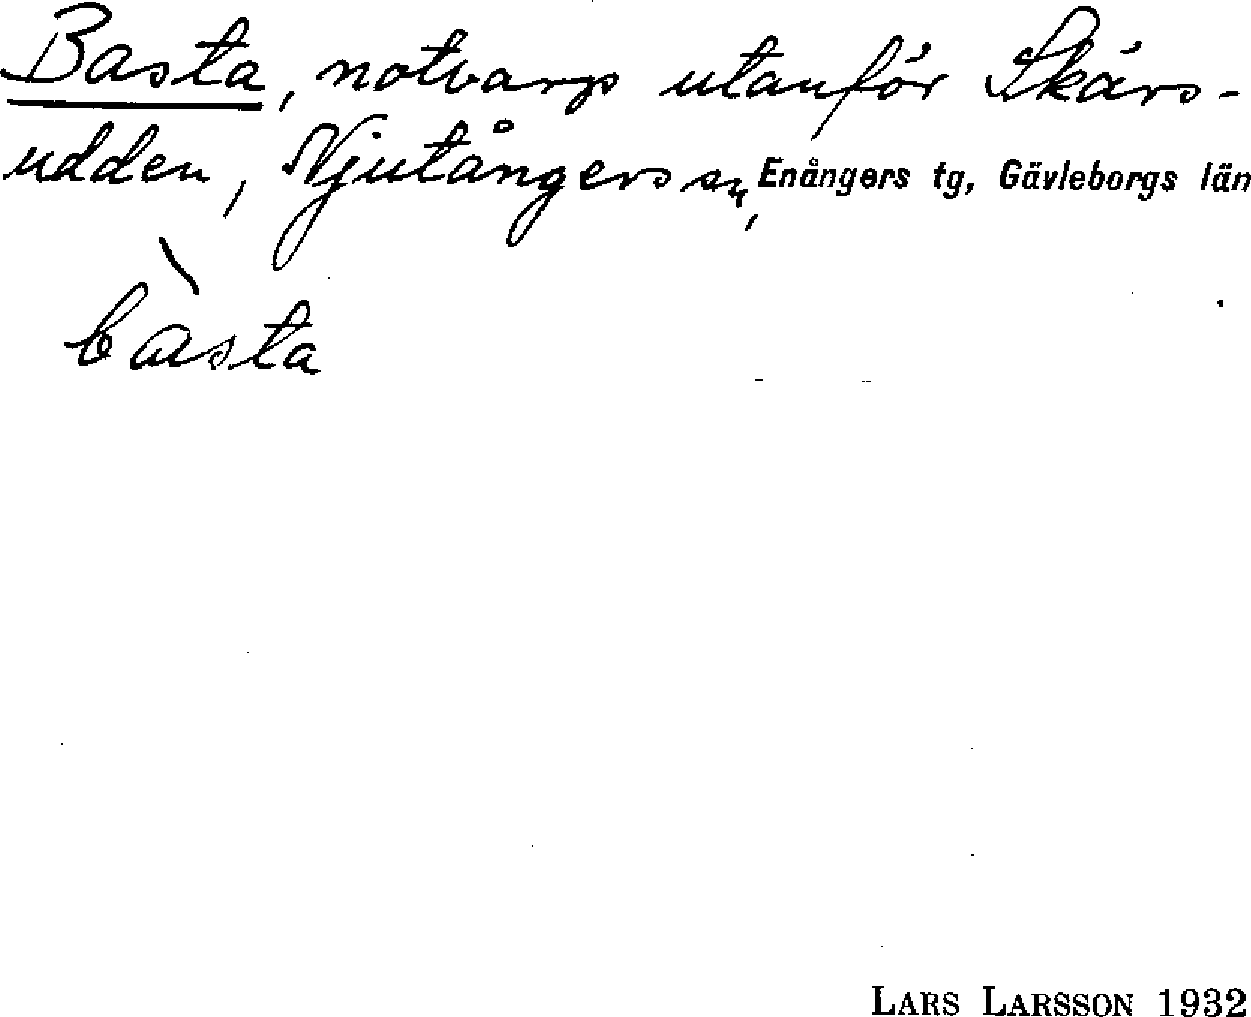 Basta, notvarp utanför Skärs-
udden, Njutångers sn, Enångers tg, Gävleborgs län
bàsta
LARS LARSSON 1932